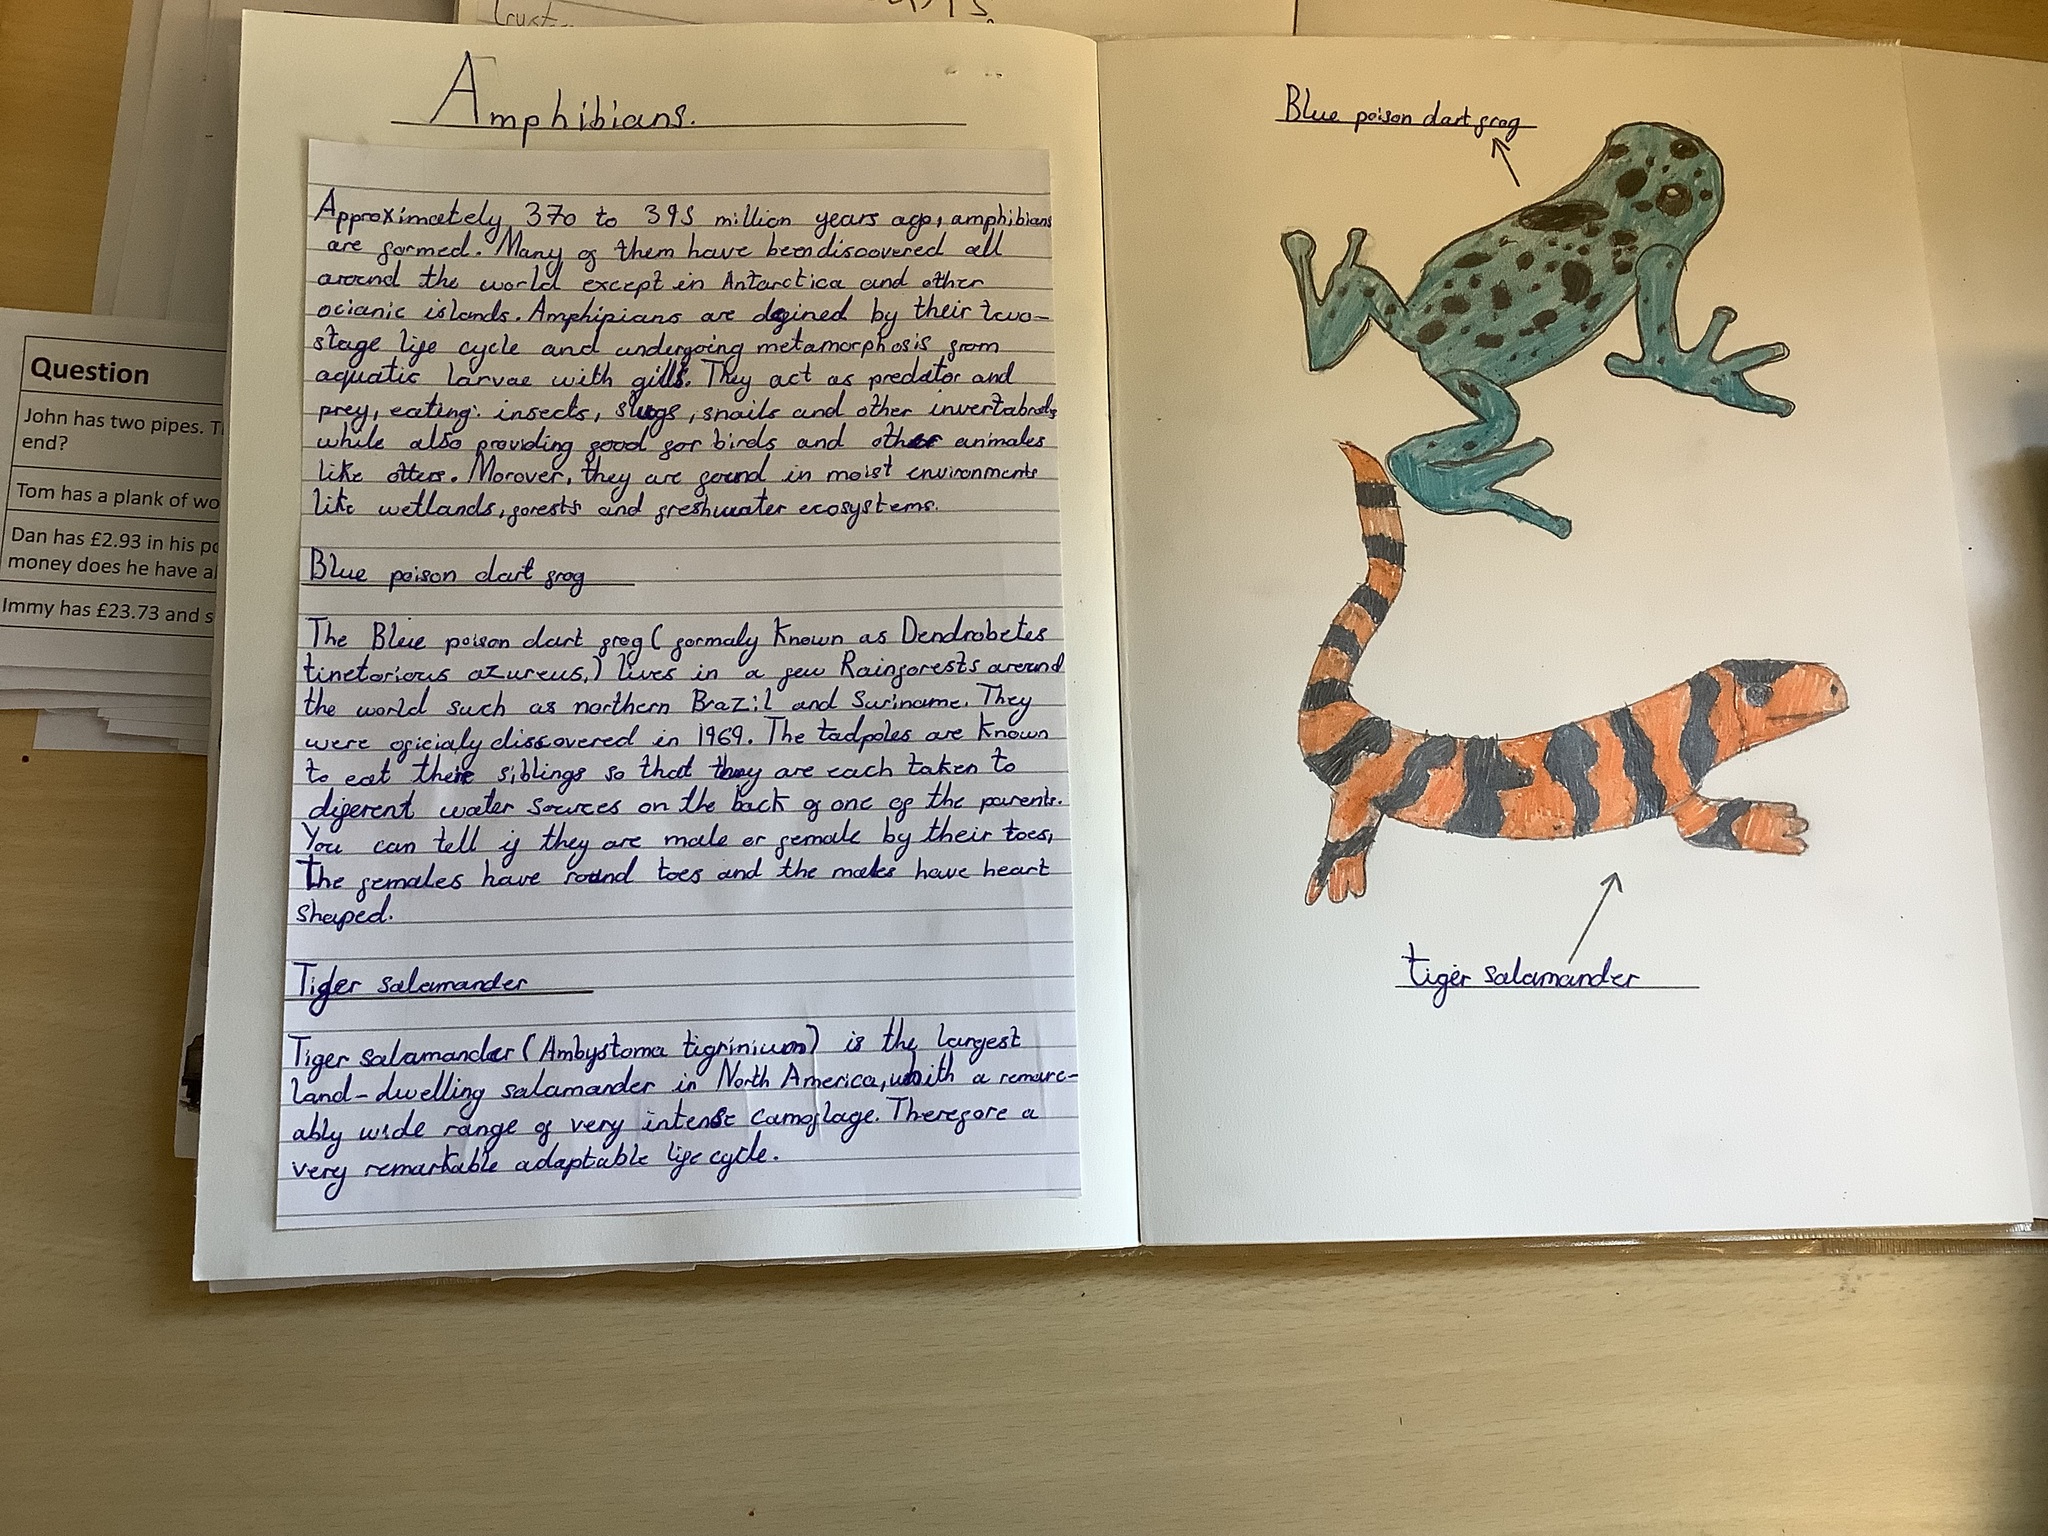 Amphibians.
Approximately 370 to 395 million years ago, amphibians
are formed. Many of them have been discovered all
around the world except in Antarctica and other
ocianic islands. Amphipians are defined by their two-
stage life cycle and undergoing metamorphosis from
aquatic larvae with gills. They act as predator and
prey, eating: insects, slugs, snails and other invertabrats
while also providing good for birds and other animales
like otters. Morover, they are found in moist environments
like wetlands, forests and freshwater ecosystems.
Blue poison dart frog
The Blue poison dart frog ( formaly known as Dendrobetes
tinetorious azureus,) lives in a few Rainforests around
the world such as northern Brazil and Suriname. They
were oficialy discovered in 1969. The tadpoles are known
to eat their siblings so that they are each taken to
diferent water sources on the back of one of the parents.
You can tell if they are male or female by their toes,
The females have round toes and the males have heart
shaped.
Tiger salamander
Tiger salamander (Ambystoma tigrinium) is the largest
land-dwelling salamander in North America, whith a remarc-
ably wide range of very intense camoflage. Therefore a
very remarkable adaptable life cycle.
Blue poison dart frog
tiger salamander
Question
John has two pipes.
end?
Tom has a plank of
Dan has £2.93 in his
money does he have
Immy has £23.73 and